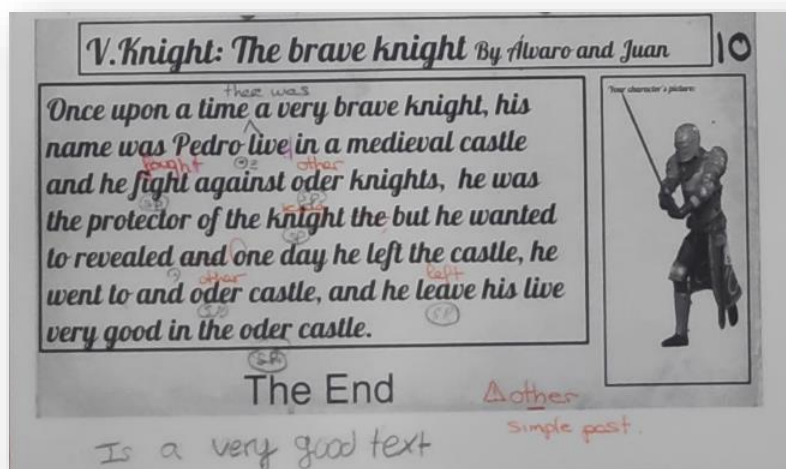 V.Knight: The brave knight By Álvaro and Juan
10
there was
Once upon a time a very brave knight, his
name was Pedro live in a medieval castle
fought other
and he fight against oder knights, he was
the protector of the knight the but he wanted
to revealed and one day he left the castle, he
other left
went to and oder castle, and he leave his live
very good in the oder castle.
Your character's picture:
The End
other
simple past.
Is a very good text